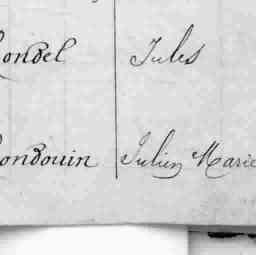 Rondel Jules
Rondouin Julien Marie